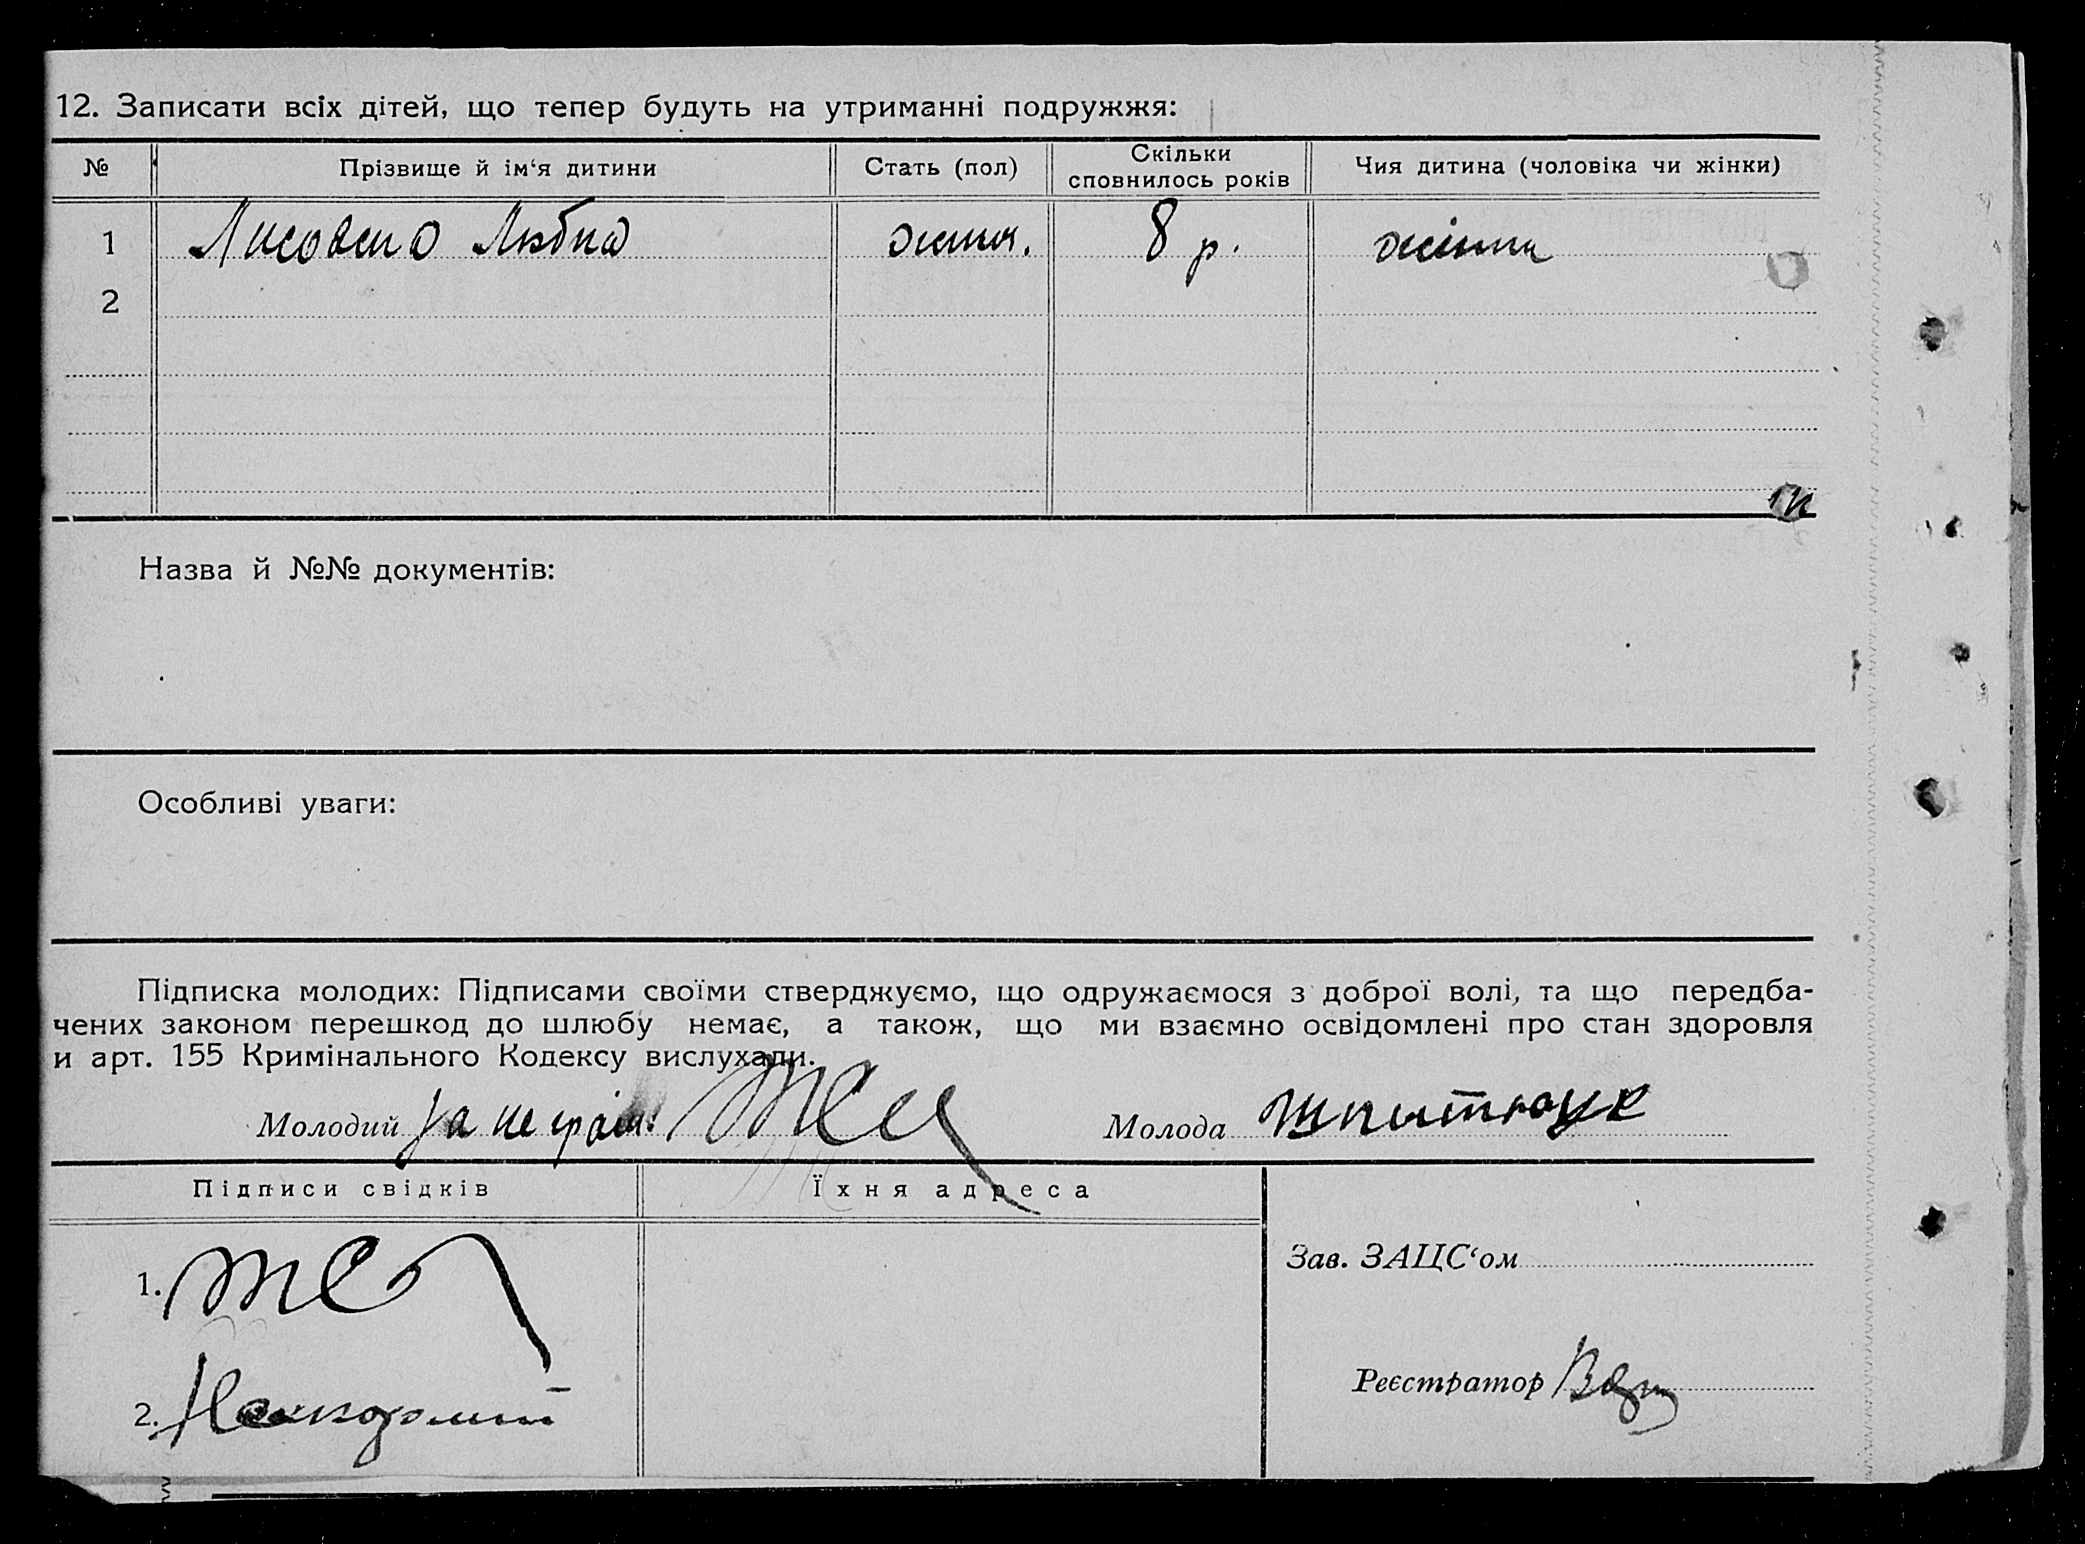 12. Записати всіх дітей, що тепер будуть на утриманні подружжя:
№ Прізвище й ім‘я дитини Стать (пол) Скільки сповнилось років Чия дитина (чоловіка чи жінки)
1 Любка 8 р.
2
Назва й №№ документів:
Особливі уваги:
Підписка молодих: Підписами своїми стверджуємо, що одружаємося з доброї волі, та що передба-
чених законом перешкод до шлюбу немає, а також, що ми взаємно освідомлені про стан здоровля
и арт. 155 Кримінального Кодексу вислухали.
Молодий за не Молода
Підписи свідків Їхня адреса
Зав. ЗАЦС‘ом
1.
Реєстратор
2.